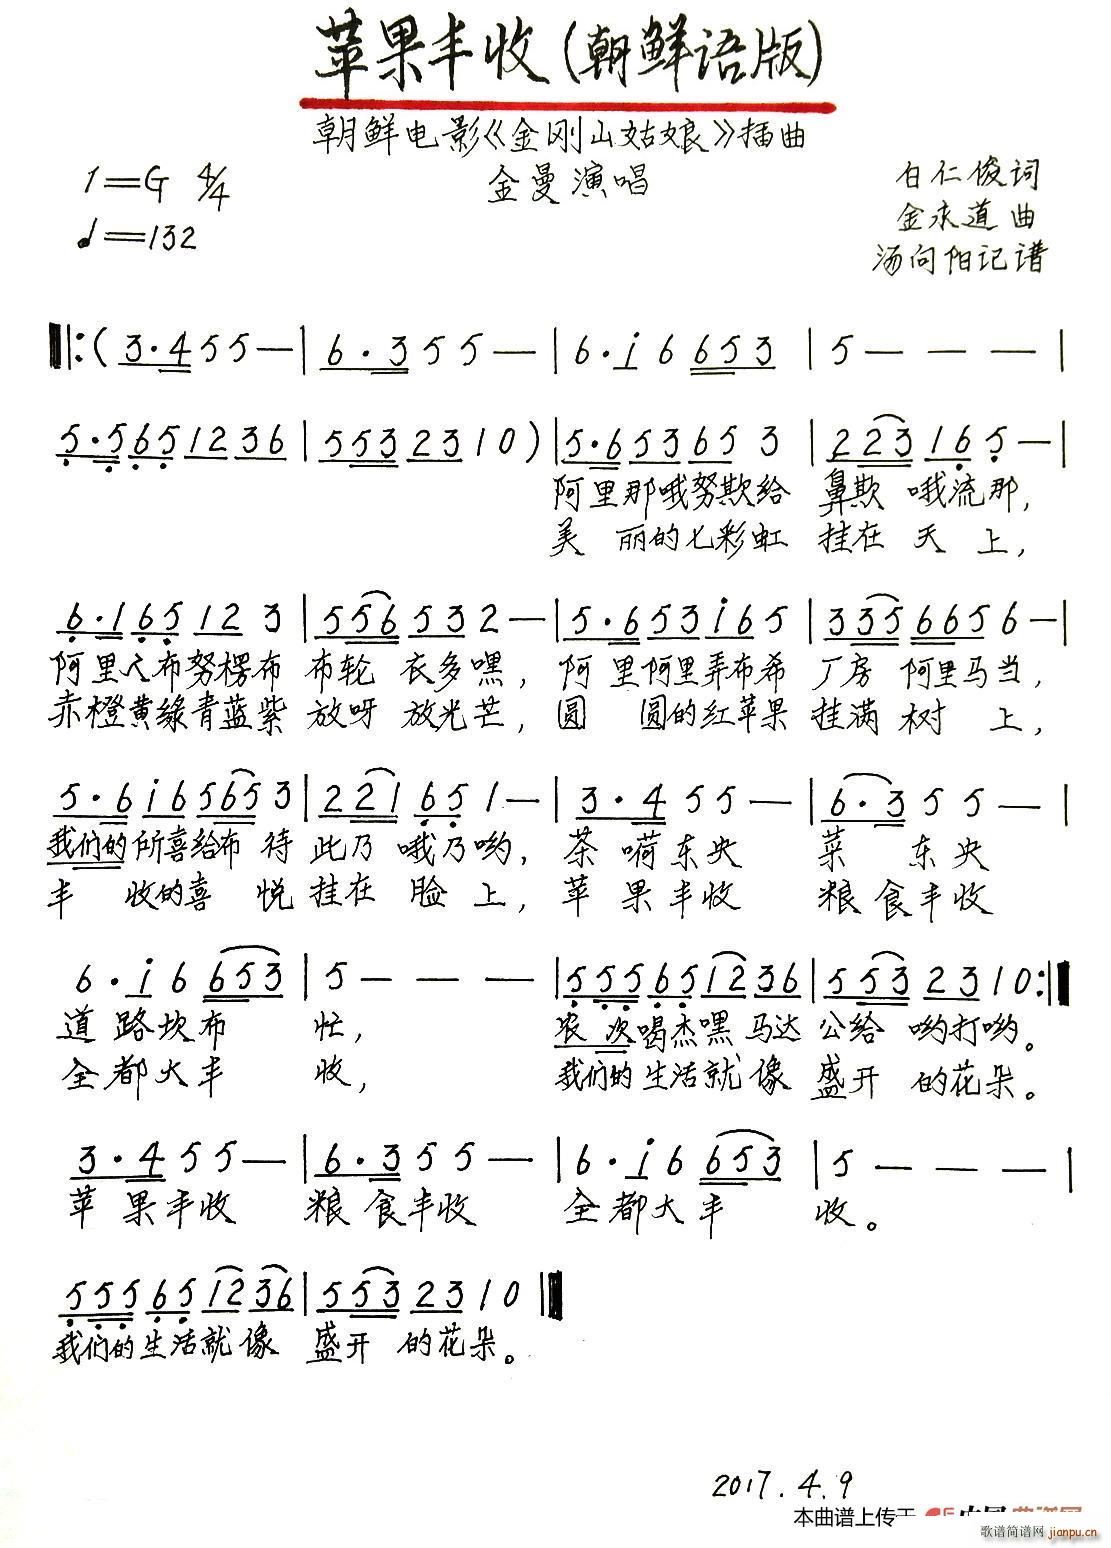 苹果丰收(朝鲜语版)
朝鲜电影《金刚山姑娘》插曲
1=G 4/4 金曼演唱 白仁俊词
♩=132 金永道曲
汤向阳记谱
‖:( 3·4 5 5 — | 6·3 5 5 — | 6·i 6 653 | 5 — — — |
5·565 1236 | 553 23 1 0 ) | 5·65365 3 | 223 16 5 — |
阿里那哦努欺给 鼻欺 哦流那,
美 丽的七彩虹 挂在 天 上,
6·165 12 3 | 556 53 2 — | 5·653i65 | 335 6656 — |
阿里亽布努楞布 布轮 衣多嘿, 阿里阿里弄布希 厂房 阿里马当,
赤橙黄绿青蓝紫 放呀 放光芒, 圆 圆的红苹果 挂满 树 上,
5·6i6565 3 | 221 65 1 — | 3·4 5 5 — | 6·3 5 5 — |
我们的所喜给布 待 此乃 哦乃哟, 茶嗬东央 菜 东央
丰 收的喜 悦 挂在 脸 上, 苹 果丰收 粮食丰收
6·i 6 653 | 5 — — — | 55565 1236 | 553 23 1 0 :‖
道路坎布 忙, 农 次喝杰嘿 马达 公给 哟打哟。
全都大丰 收, 我们的生活就像 盛开 的花朵。
3·4 5 5 — | 6·3 5 5 — | 6·i 6 653 | 5 — — — |
苹 果丰收 粮食丰收 全都大丰 收。
55565 1236 | 553 23 1 0 ‖
我们的生活就像 盛开 的花朵。
2017.4.9
本曲谱上传于
歌谱简谱网 jianpu.cn